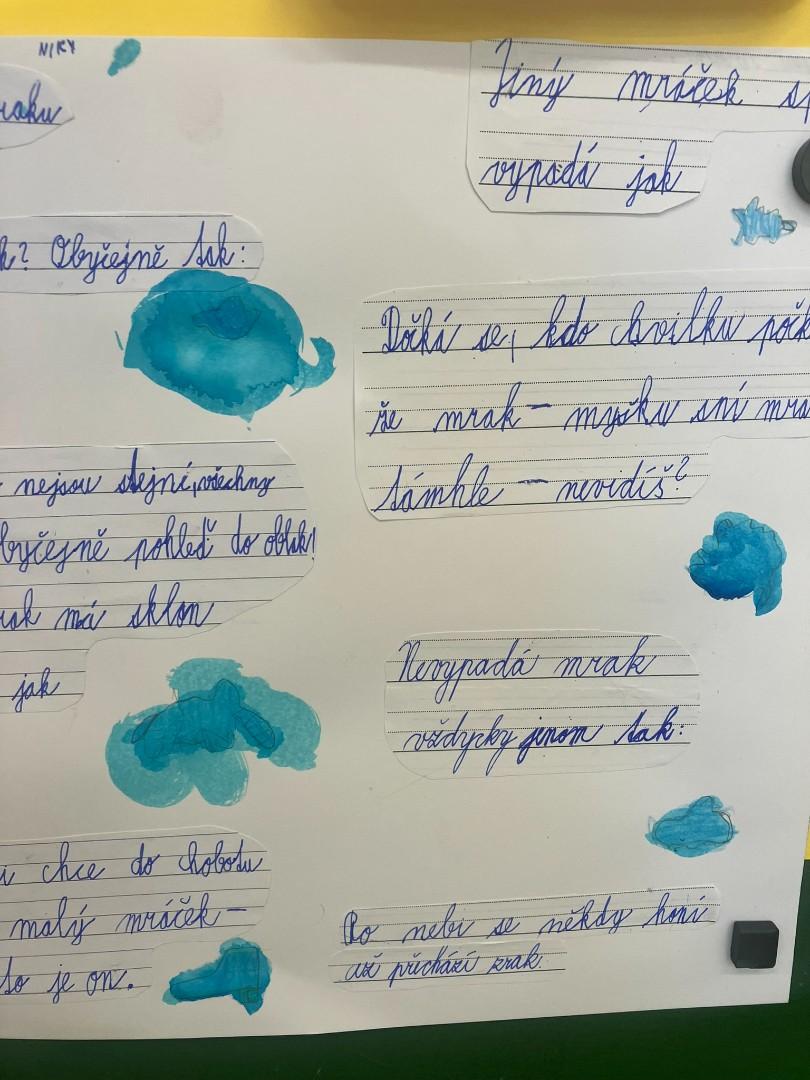 NIKY
raku
k? Obyčejně tak:
nejsou stejní, všechny
byčejně pohleď do oblak!
rak má sklon
jak
i chce do chobotu
malý mráček –
to je on.
Jiný mráček sp
vypadá jak
Dočká se, kdo chvilku počk
že mrak – myšku sní mra
támhle – nevidíš?
Nevypadá mrak
vždycky jenom tak:
Po nebi se někdy honí
až přichází zrak.